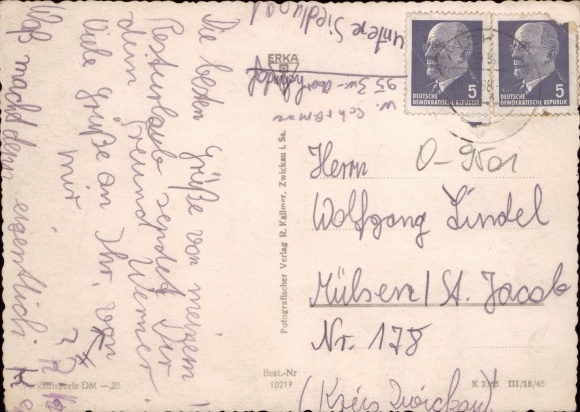 Die besten Grüße von meinem
Resturlaub sendet Dir
dein Freund Werner.
Viele Grüße an Ihr. von
mir
Was macht denn eigentlich
unsere Siedlung
ERKA
W. Schramm
95 Zw.-
Fotografischer Verlag R. Kallmer, Zwickau i. Sa.
5
DEUTSCHE
DEMOKRATISCHE REPUBLIK
5
DEUTSCHE
DEMOKRATISCHE REPUBLIK
O-9501
Herrn
Wolfgang Lindel
Mülsen/St. Jacob
Nr. 178
(Kreis Zwickau)
DM -,25
Best.-Nr
10217
III/18/45